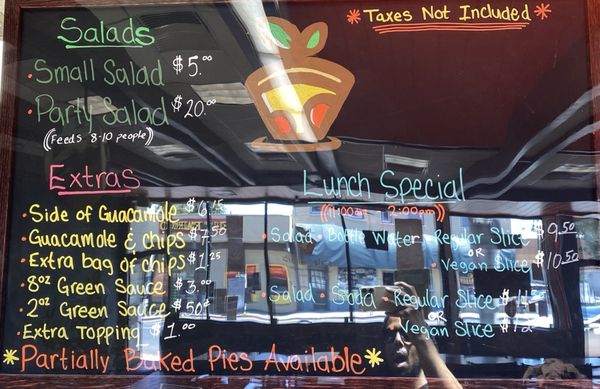 Salads
• Small Salad $5.00
• Party Salad $20.00
((Feeds 8-10 people))
* Taxes Not Included *
Extras
• Side of Guacamole $6.15
• Guacamole & chips $7.50
• Extra bag of chips $1.25
• 8oz Green Sauce $3.00
• 2oz Green Sauce 50¢
• Extra Topping $1.00
Lunch Special
((11:00am - 2:00pm))
• Salad • Bottle Water • Regular Slice $9.50
OR
• Vegan Slice $10.50
Salad • Soda • Regular Slice
OR
• Vegan Slice
* Partially Baked Pies Available *